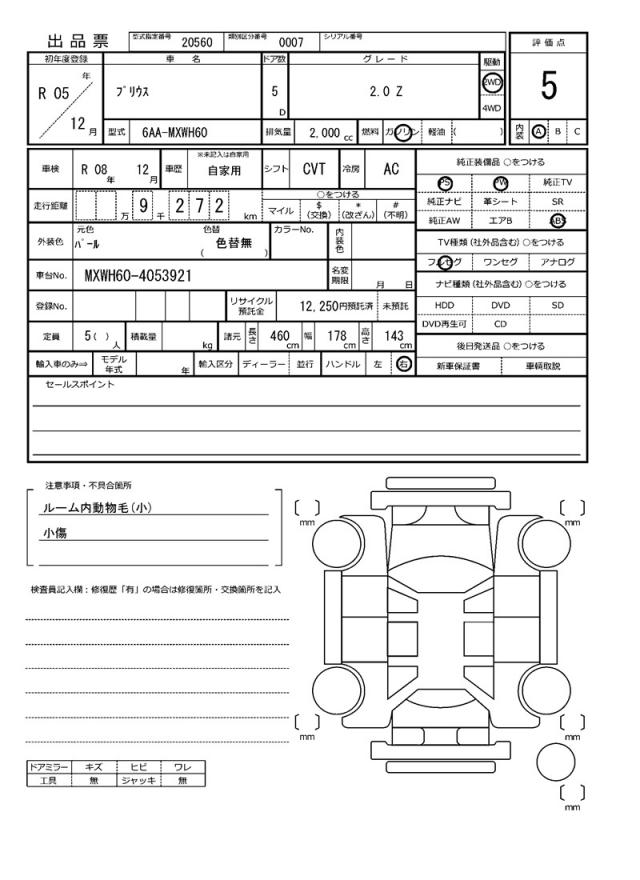 出品票
型式指定番号 20560 類別区分番号 0007 シリアル番号
評価点
5
初年度登録 車名 ドア数 グレード 駆動
R 05 年 12 月 プリウス 5 D 2.0 Z 2WD 4WD
型式 6AA-MXWH60 排気量 2,000 cc 燃料 ガソリン 軽油 ( )
内装 A B C
車検 R 08 年 12 月 車歴 ※未記入は自家用 自家用 シフト CVT 冷房 AC
走行距離 万 9 千 2 7 2 km
○をつける
マイル $ (交換) * (改ざん) # (不明)
外装色 元色 パール 色替 色替無 ( ) カラーNo. 内装色
車台No. MXWH60-4053921 名変期限 月 日
登録No. リサイクル預託金 12,250円預託済 未預託
定員 5( ) 人 積載量 kg 諸元 長さ 460 cm 幅 178 cm 高さ 143 cm
輸入車のみ⇒ モデル年式 年 輸入区分 ディーラー 並行 ハンドル 左 右
純正装備品 ○をつける
PS PW 純正TV
純正ナビ 革シート SR
純正AW エアB ABS
TV種類 (社外品含む) ○をつける
フルセグ ワンセグ アナログ
ナビ種類 (社外品含む) ○をつける
HDD DVD SD
DVD再生可 CD
後日発送品 ○をつける
新車保証書 車輌取説
セールスポイント
注意事項・不具合箇所
ルーム内動物毛(小)
小傷
検査員記入欄：修復歴「有」の場合は修復箇所・交換箇所を記入
ドアミラー キズ ヒビ ワレ
工具 無 ジャッキ 無
( ) mm
( ) mm
( ) mm
( ) mm
( ) mm